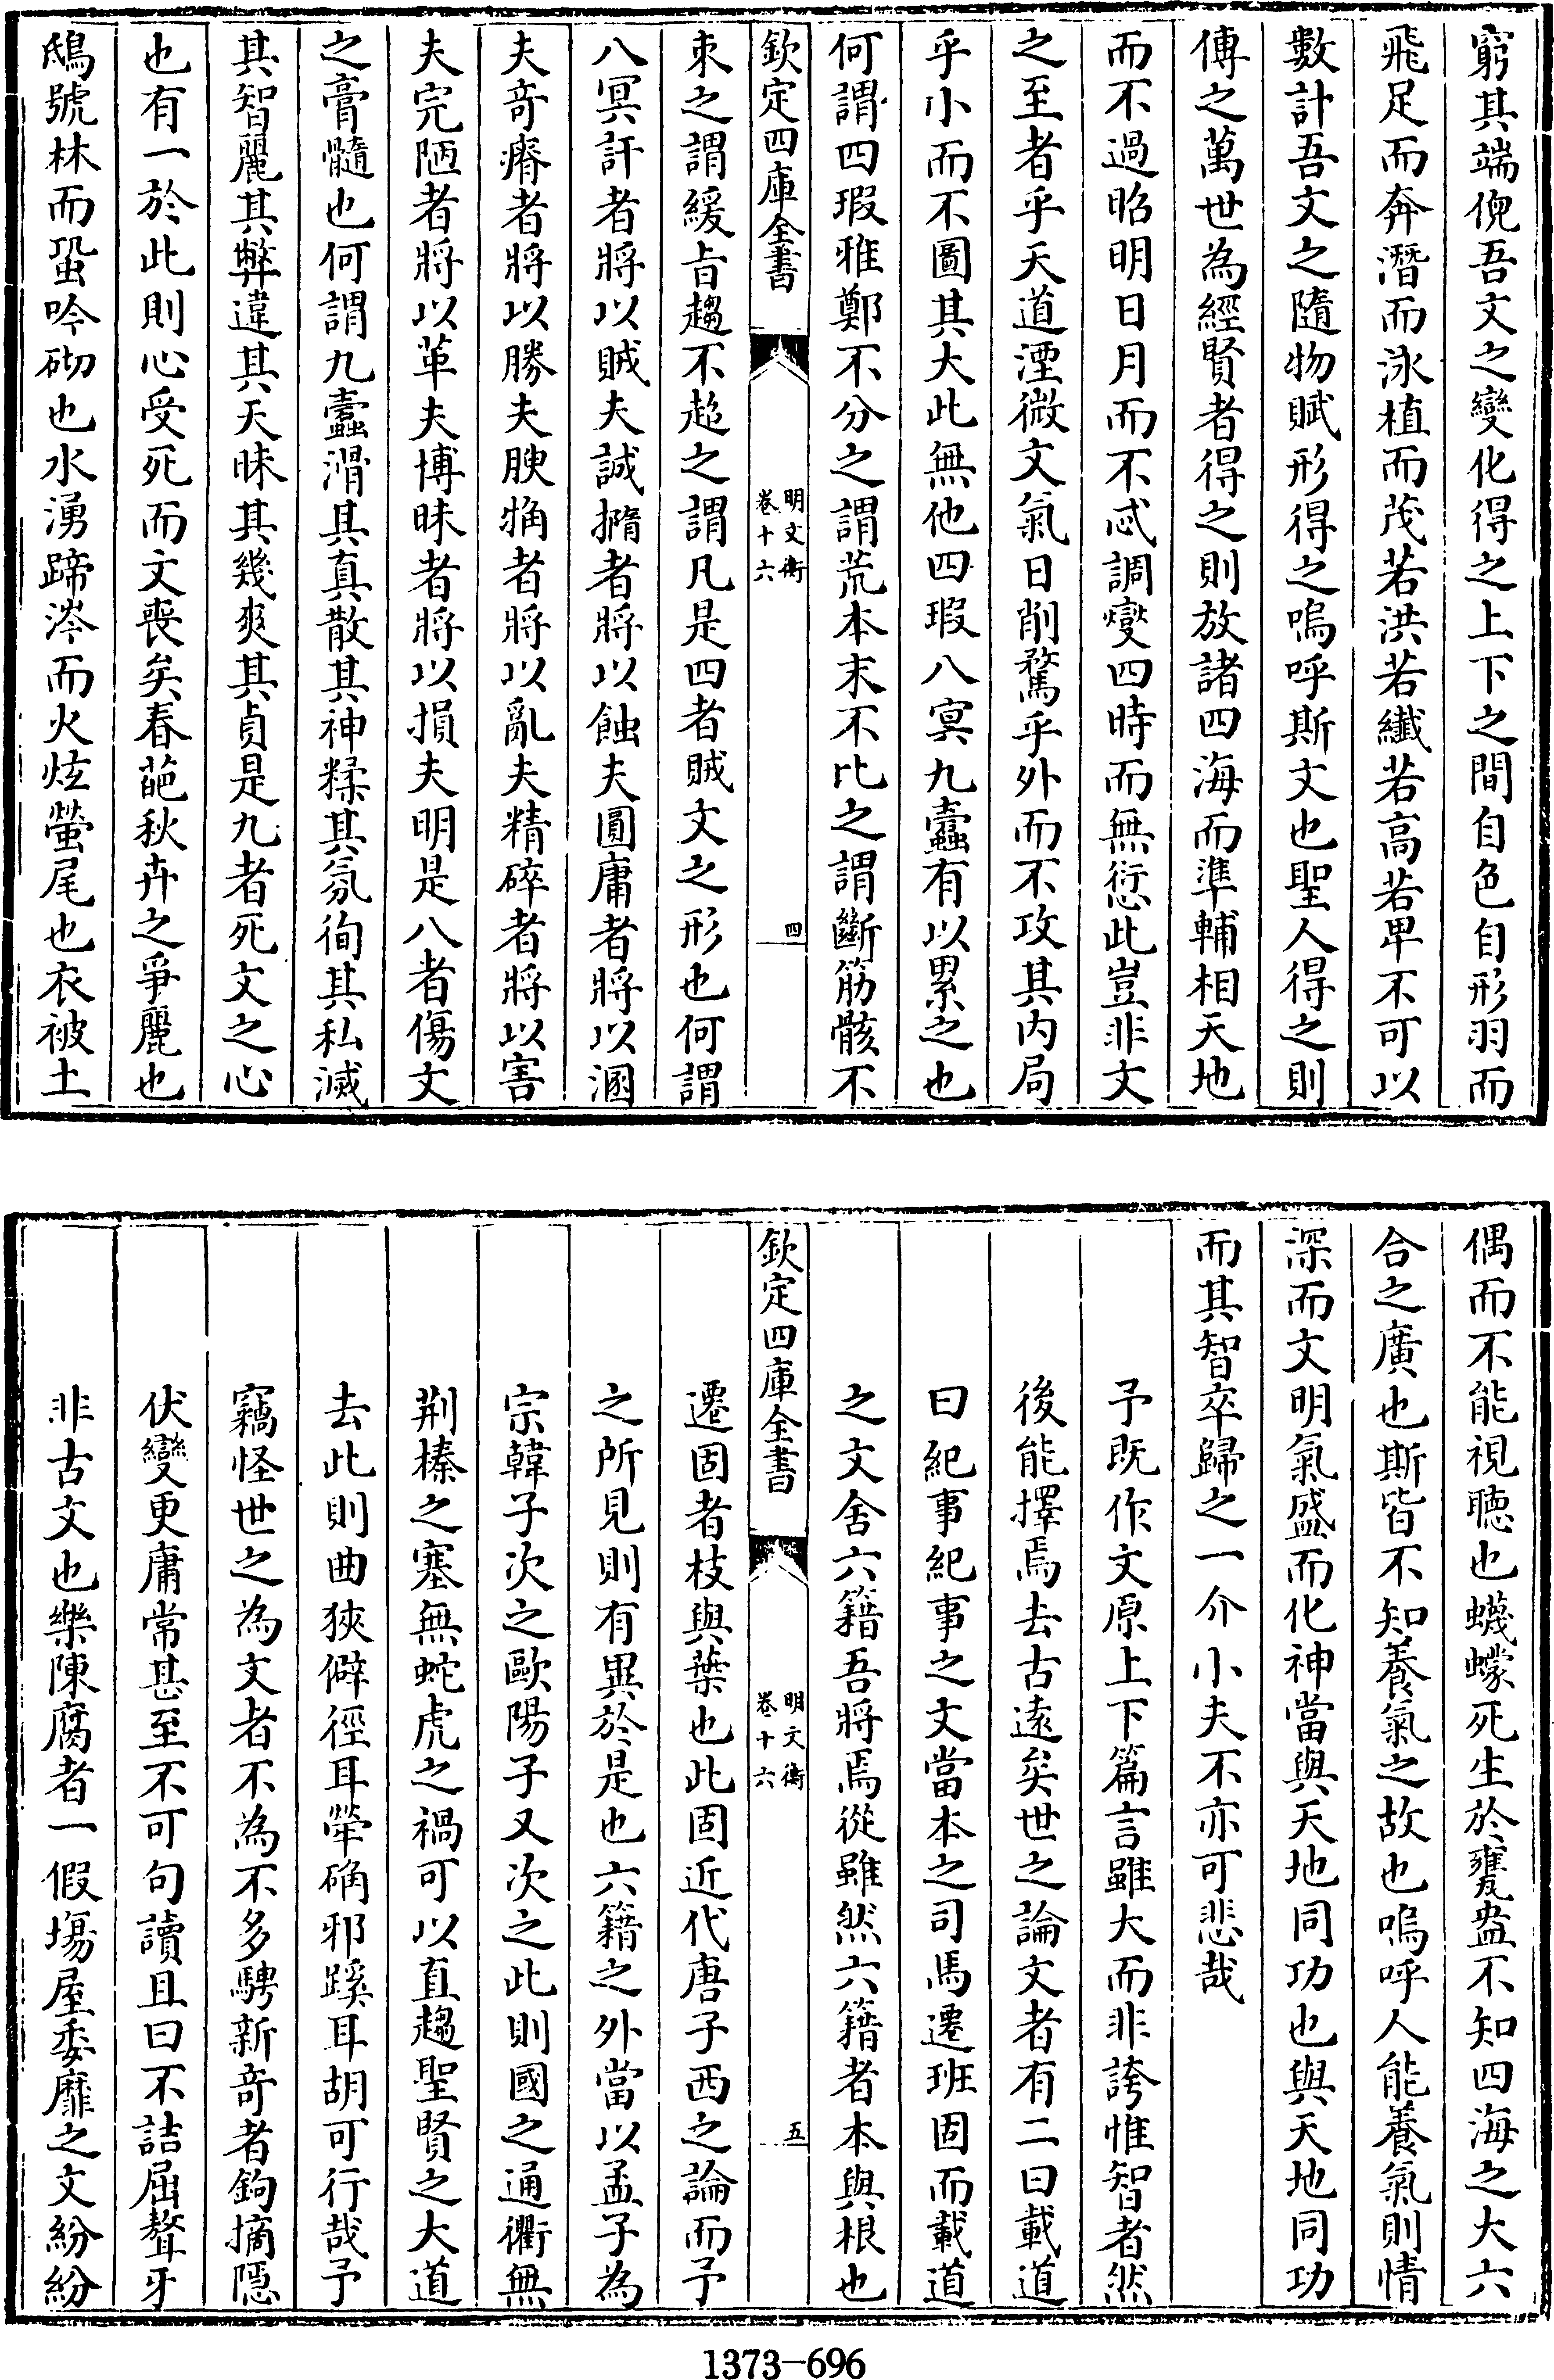 窮其端倪吾文之變化得之上下之間自色自形羽而
飛足而奔潛而泳植而茂若洪若纖若高若卑不可以
數計吾文之隨物賦形得之嗚呼斯文也聖人得之則
傳之萬世為經賢者得之則放諸四海而準輔相天地
而不過昭明日月而不忒調燮四時而無愆此豈非文
之至者乎天道湮微文氣日削騖乎外而不攻其内局
乎小而不圖其大此無他四瑕八冥九蠹有以累之也
何謂四瑕雅鄭不分之謂荒本末不比之謂斷筋骸不
欽定四庫全書
明文衡
卷十六
四
束之謂緩旨趨不超之謂凡是四者賊文之形也何謂
八冥訐者將以賊夫誠撱者將以蝕夫圓庸者將以溷
夫奇瘠者將以勝夫腴觕者將以亂夫精碎者將以害
夫完陋者將以革夫博昧者將以損夫明是八者傷文
之膏髓也何謂九蠹滑其真散其神糅其氛徇其私滅
其智麗其弊違其天昧其幾爽其貞是九者死文之心
也有一於此則心受死而文喪矣春葩秋卉之爭麗也
鴟號林而蛩吟砌也水湧蹄涔而火炫螢尾也衣被土
偶而不能視聽也蠛蠓死生於甕盎不知四海之大六
合之廣也斯皆不知養氣之故也嗚呼人能養氣則情
深而文明氣盛而化神當與天地同功也與天地同功
而其智卒歸之一介小夫不亦可悲哉
予既作文原上下篇言雖大而非誇惟智者然
後能擇焉去古遠矣世之論文者有二曰載道
曰紀事紀事之文當本之司馬遷班固而載道
之文舍六籍吾將焉從雖然六籍者本與根也
欽定四庫全書
明文衡
卷十六
五
遷固者枝與葉也此固近代唐子西之論而予
之所見則有異於是也六籍之外當以孟子為
宗韓子次之歐陽子又次之此則國之通衢無
荆榛之塞無蛇虎之禍可以直趨聖賢之大道
去此則曲狹僻徑耳犖确邪蹊耳胡可行哉予
竊怪世之為文者不為不多騁新奇者鉤摘隱
伏變更庸常甚至不可句讀且曰不詰屈聱牙
非古文也樂陳腐者一假塲屋委靡之文紛紛
1373-696